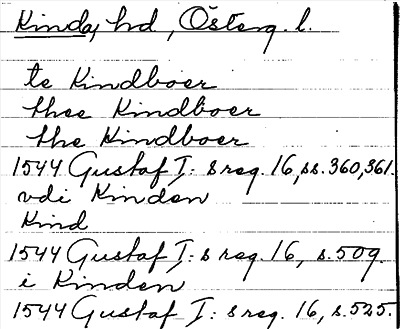 Kinda, hd, Österg. l.
te Kindboer
thee Kindboer
the Kindboer
1544 Gustaf I: s reg. 16, ss. 360, 361.
vdi Kinden
Kind
1544 Gustaf I: s reg. 16, s. 509.
i Kinden
1544 Gustaf I: s reg. 16, s. 525.